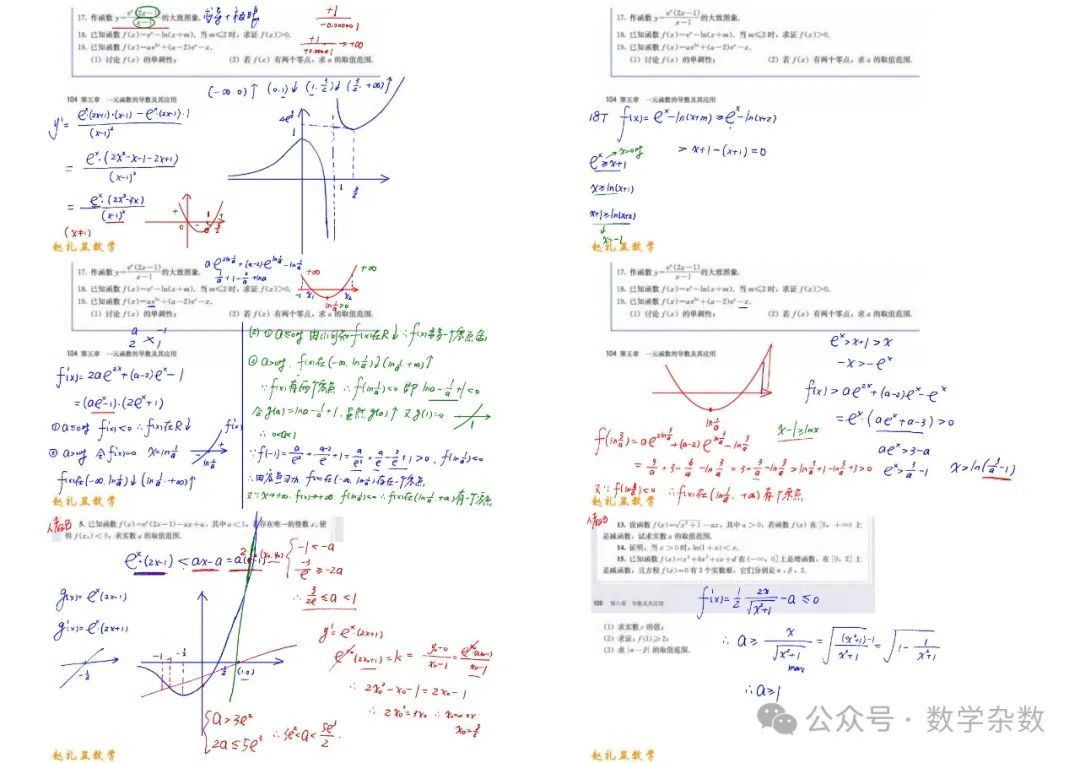 17. 作函数 y=e^x(2x-1)/(x-1) 的大致图象.
18. 已知函数 f(x)=e^x-ln(x+m). 当 m≤2 时, 求证 f(x)>0.
19. 已知函数 f(x)=ae^{2x}+(a-2)e^x-x.
(1) 讨论 f(x) 的单调性; (2) 若 f(x) 有两个零点, 求 a 的取值范围.
+1/-0.00001
+1/+0.00001 → +∞
104 第五章 一元函数的导数及其应用
(-∞,0)↑ (0,1)↓ (1,3/2)↓ (3/2,+∞)↑
y'= e^x·(2x+1)·(x-1)-e^x·(2x-1)·1/(x-1)²
= e^x·(2x²-x-1-2x+1)/(x-1)²
= e^x·(2x²-3x)/(x-1)²
(x≠1)
赵礼显数学
17. 作函数 y=e^x(2x-1)/(x-1) 的大致图象.
18. 已知函数 f(x)=e^x-ln(x+m). 当 m≤2 时, 求证 f(x)>0.
19. 已知函数 f(x)=ae^{2x}+(a-2)e^x-x.
(1) 讨论 f(x) 的单调性; (2) 若 f(x) 有两个零点, 求 a 的取值范围.
104 第五章 一元函数的导数及其应用
18T f(x)=e^x-ln(x+m)≥e^x-ln(x+2)
> x+1-(x+1)=0
e^x≥x+1 x=0时
x≥ln(x+1)
x+1≥ln(x+2)
x=-1
赵礼显数学
17. 作函数 y=e^x(2x-1)/(x-1) 的大致图象.
18. 已知函数 f(x)=e^x-ln(x+m). 当 m≤2 时, 求证 f(x)>0.
19. 已知函数 f(x)=ae^{2x}+(a-2)e^x-x.
(1) 讨论 f(x) 的单调性; (2) 若 f(x) 有两个零点, 求 a 的取值范围.
104 第五章 一元函数的导数及其应用
f'(x)=2ae^{2x}+(a-2)e^x-1
=(ae^x-1)·(2e^x+1)
①a≤0时 f'(x)<0 ∴f(x)在R↓
②a>0时 令f'(x)=0 x=ln1/a
f(x)在(-∞,ln1/a)↓(ln1/a,+∞)↑
(2) ①a≤0时 由(1)可知f(x)在R↓ ∴f(x)至多一个零点舍
②a>0时, f(x)在(-∞,ln1/a)↓(ln1/a,+∞)↑
∵f(x)有两个零点 ∴f(ln1/a)<0 即 lna-1/a+1<0
令g(a)=lna-1/a+1, 显然g(a)↑ 又g(1)=0
∴0<a<1
赵礼显数学
17. 作函数 y=e^x(2x-1)/(x-1) 的大致图象.
18. 已知函数 f(x)=e^x-ln(x+m). 当 m≤2 时, 求证 f(x)>0.
19. 已知函数 f(x)=ae^{2x}+(a-2)e^x-x.
(1) 讨论 f(x) 的单调性; (2) 若 f(x) 有两个零点, 求 a 的取值范围.
104 第五章 一元函数的导数及其应用
e^x>x+1>x
-x>-e^x
f(x)>ae^{2x}+(a-2)e^x-e^x
=e^x·(ae^x+a-3)>0
ae^x>3-a
e^x>3/a-1 x>ln(3/a-1)
x-1≥lnx
f(ln3/a)=ae^{2ln3/a}+(a-2)e^{ln3/a}-ln3/a
=9/a+3-6/a-ln3/a=3+3/a-ln3/a>ln3/a+1-ln3/a+3>0
又∵f(ln1/a)<0 ∴f(x)在(ln1/a,+∞)有个零点
赵礼显数学
人教B
5. 已知函数 f(x)=e^x(2x-1)-ax+a, 其中 a<1, 若存在唯一的整数 x₀ 使
得 f(x₀)<0, 求实数 a 的取值范围.
e^x·(2x-1)<ax-a=a(x-1)
-1<-a
-3/e≥-2a
∴3/2e≤a<1
g(x)=e^x(2x-1)
g'(x)=e^x·(2x+1)
y'=e^x·(2x+1)
∴2x₀²-x₀-1=2x₀-1
∴2x₀²=3x₀ ∴x₀=0或x₀=3/2
a>3e²
2a≤5e³
∴3e²<a<5e³/2
赵礼显数学
人教B
13. 设函数 f(x)=√(x²+1)-ax, 其中 a>0, 若函数 f(x) 在 [0, +∞) 上
是减函数, 试求实数 a 的取值范围.
14. 证明: 当 x>0 时, ln(1+x)<x.
15. 已知函数 f(x)=x³+bx²+cx+d 在 (-∞, 0] 上是增函数, 在 [0, 2] 上
是减函数, 且方程 f(x)=0 有 3 个实数根, 它们分别是 α, β, 2.
108 第六章 导数及其应用
(1) 求实数 c 的值;
(2) 求证: f(1)≥2;
(3) 求 |α-β| 的取值范围.
f'(x)=1/2·2x/√(x²+1)-a≤0
∴a≥x/√(x²+1) max=√((x²+1)-1/(x²+1))=√(1-1/(x²+1))
∴a≥1
公众号·数学杂数
赵礼显数学